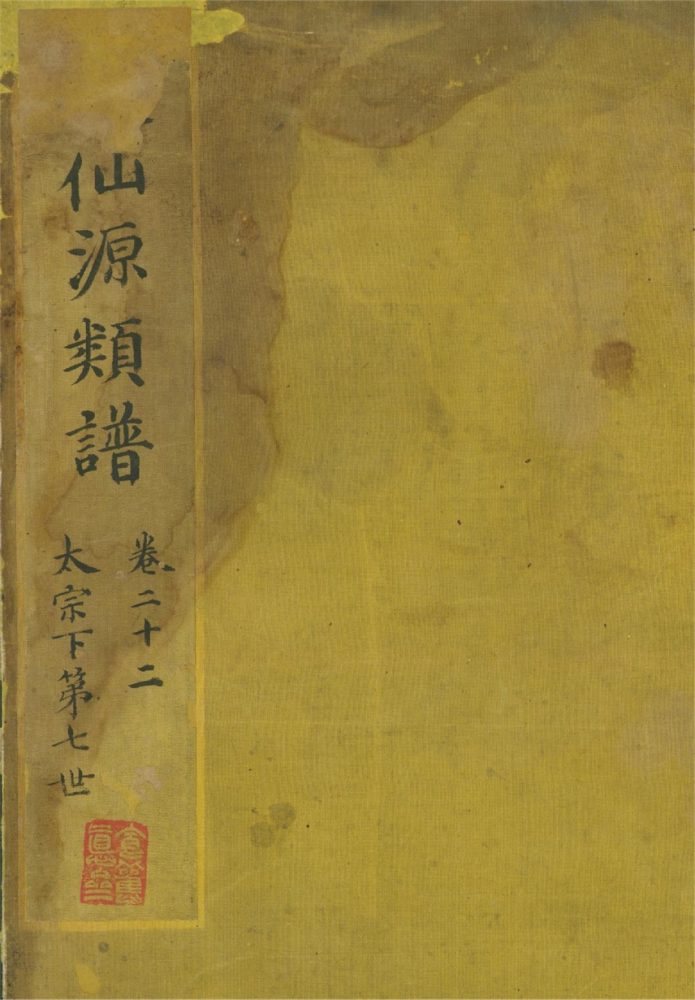 仙源類譜
卷二十二
太宗下第七世